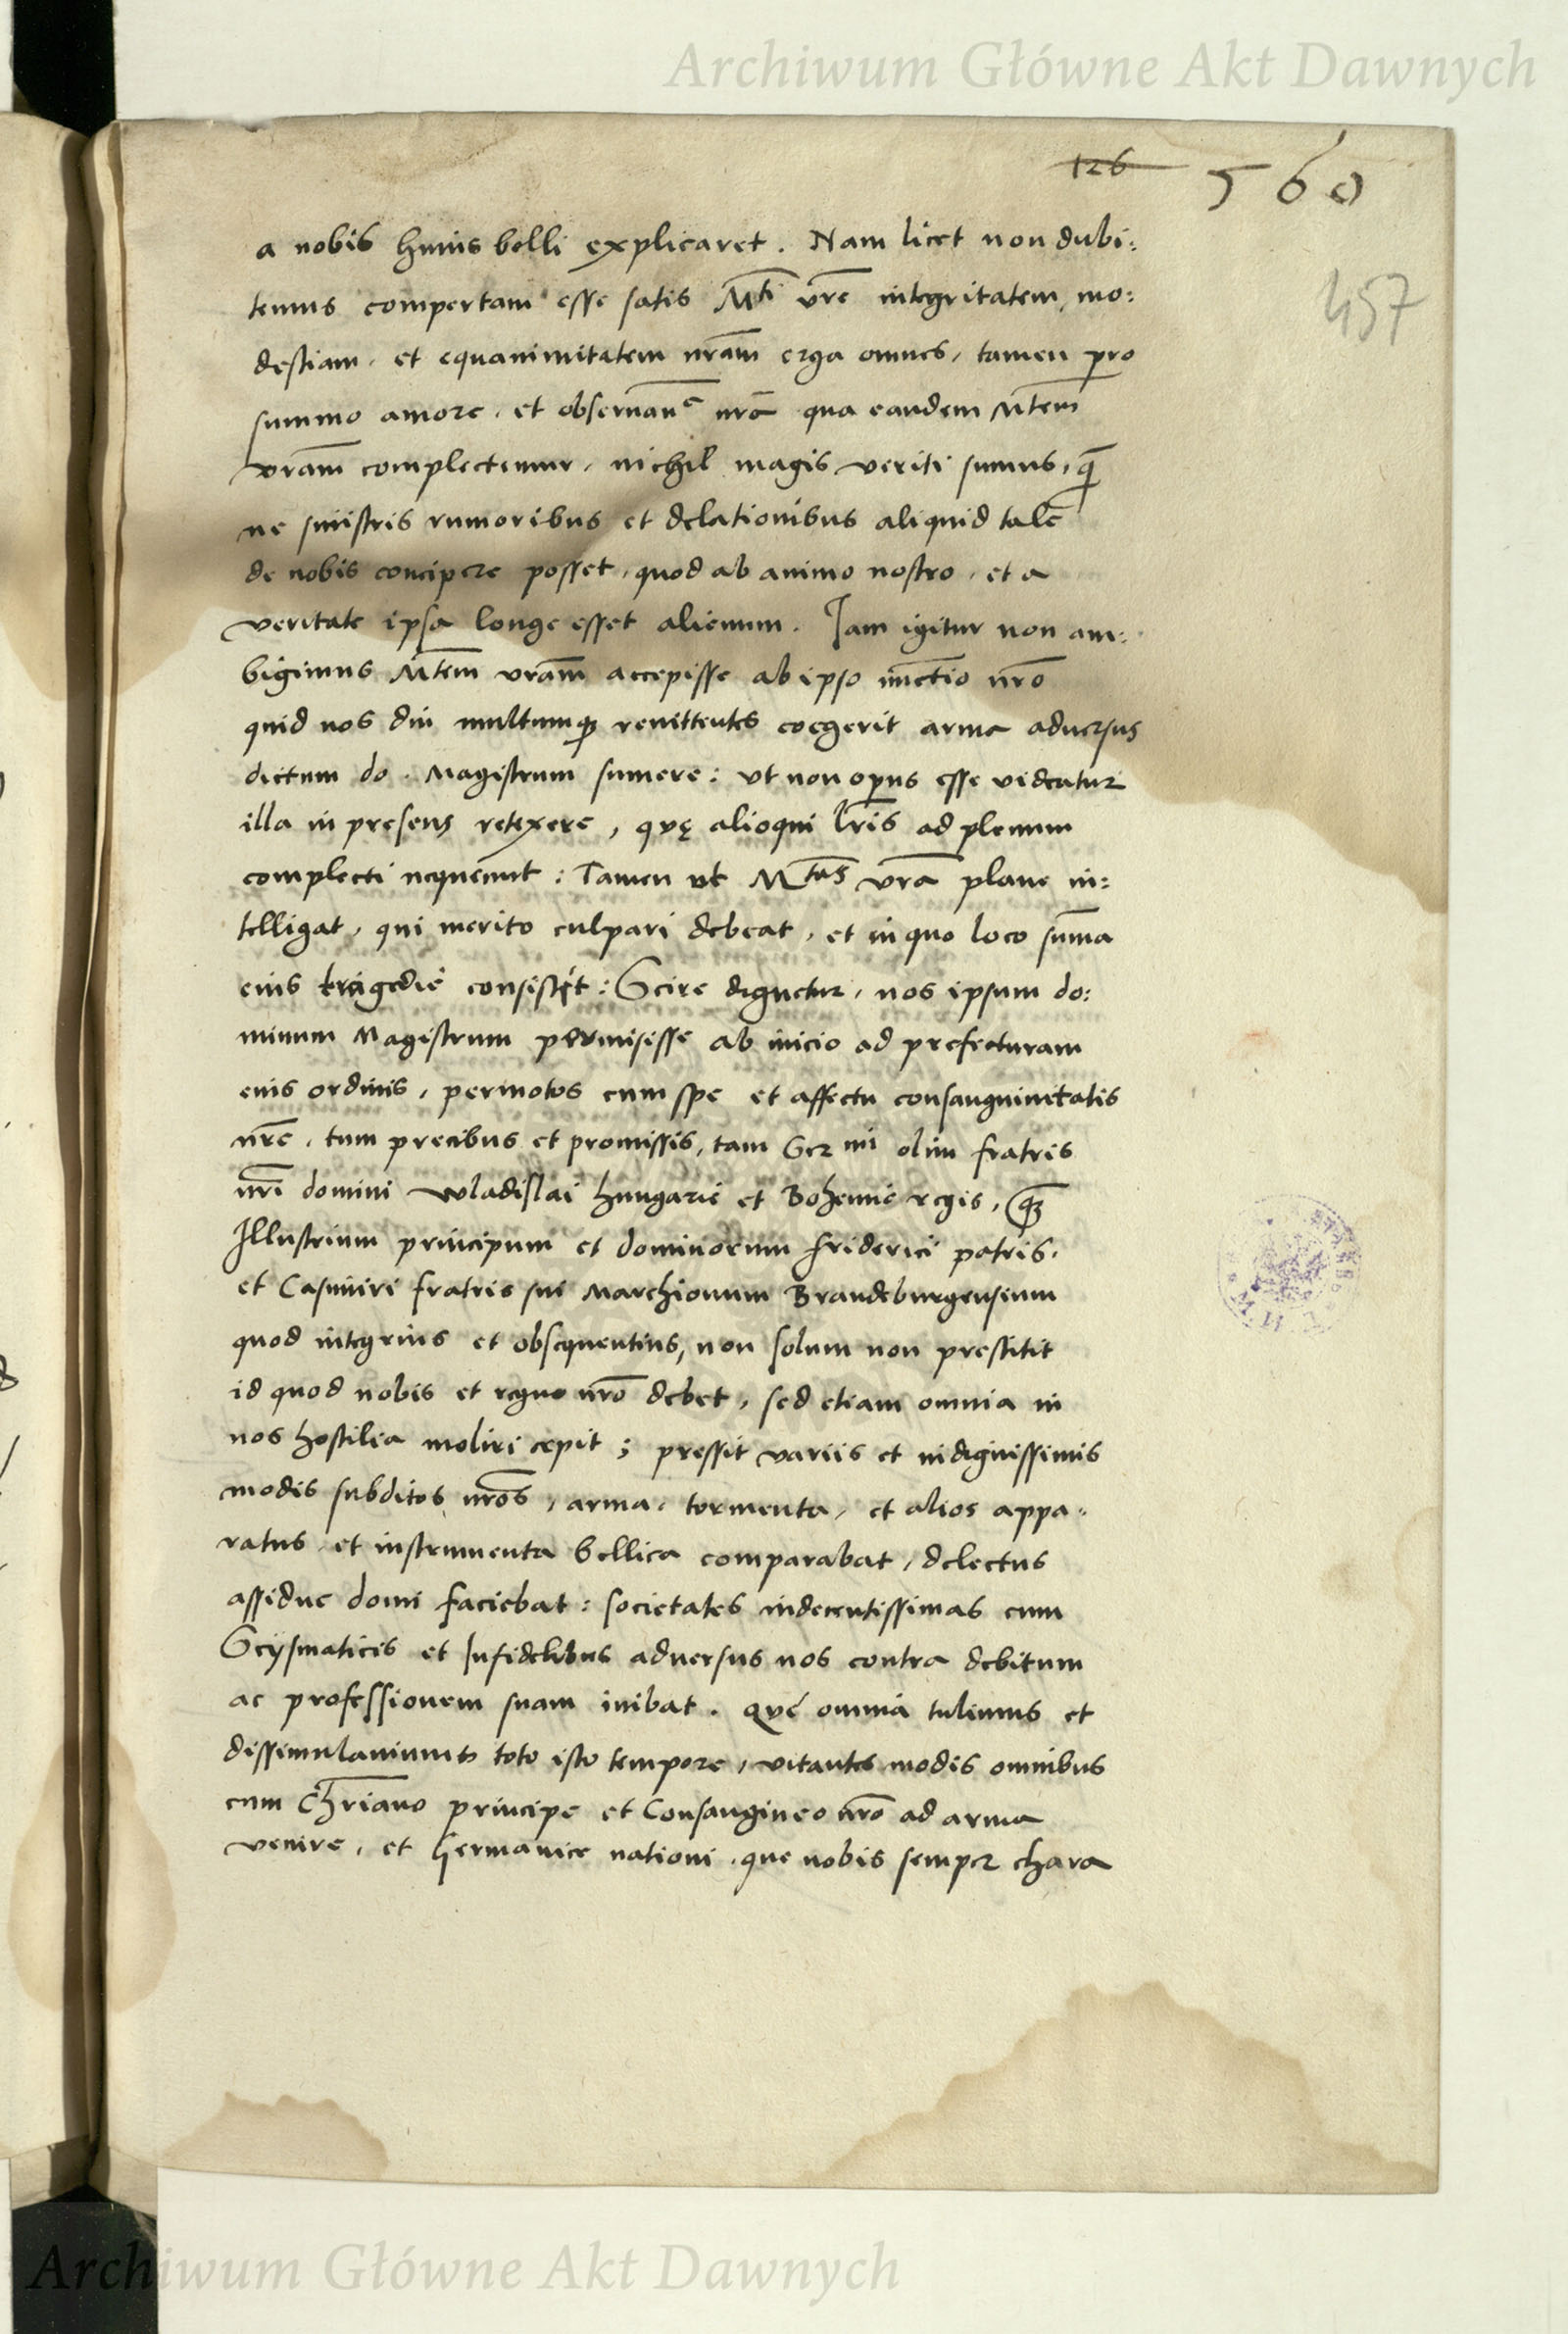 Archiwum Główne Akt Dawnych
126 560
457
a nobis huius belli explicaret. Nam licet non dubi:
temus compertam esse satis Mti vr̄e integritatem, mo:
destiam, et equanimitatem nr̄am erga omnes, tamen pro
summo amore, et obseruanc̄ nrā qua eandem Mtem
vr̄am complectimur, nichil magis veriti sumus, q̄
ne sinistris rumoribus et delationibus aliquid tale
de nobis concipere posset, quod ab animo nostro, et a
veritate ipsa longe esset alienum. Jam igitur non am:
bigimus Mtem vr̄am accepisse ab ipso nunctio nr̄o
quid nos diu multumqꝫ renittentes coegerit arma aduersus
dictum do. Magistrum sumere: vt non opus esse videatur
illa in presens retexere, quę alioqui lr̄is ad plenum
complecti nequeunt: Tamen vt Mtas vr̄a plane in:
telligat, qui merito culpari debeat, et in quo loco sum̄a
eius tragedie consistit: Scire dignetur, nos ipsum do:
minum Magistrum permisisse ab inicio ad prefecturam
eius ordinis, permotos cum spe et affectu consanguinitatis
nr̄e, tum precibus et promissis, tam Ser mi olim fratris
nr̄i domini Wladislai Hungarie et Bohemie regis, q̄ꝫ
Illustrium principum et dominorum Friderici patris,
et Casimiri fratris sui Marchionum Brandeburgensium
quod integrius et obsequentius, non solum non prestitit
id quod nobis et regno nr̄o debet, sed etiam omnia in
nos hostilia moliri cepit; pressit variis et indignissimis
modis subditos nr̄os, arma, tormenta, et alios appa-
ratus, et instrumenta bellica comparabat, delectus
assidue domi faciebat: societates indecentissimas cum
Scysmaticis et Infidelibus aduersus nos contra debitum
ac professionem suam inibat. Que omnia tulimus et
dissimulauimus toto isto tempore, vitantes modis omnibus
cum Chr̄iano principe et Consangineo nr̄o ad arma
venire, et Germanice nationi, que nobis semper chara
Archiwum Główne Akt Dawnych